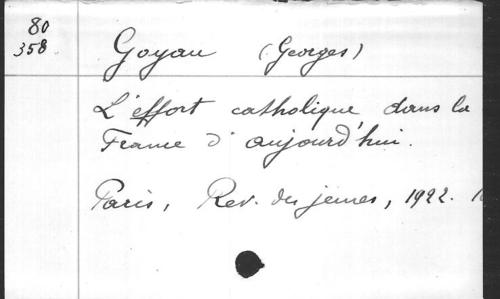 80
358
Goyau (Georges)
L'effort catholique dans la
France d'aujourd'hui.
Paris, Rev. des jeunes, 1922.